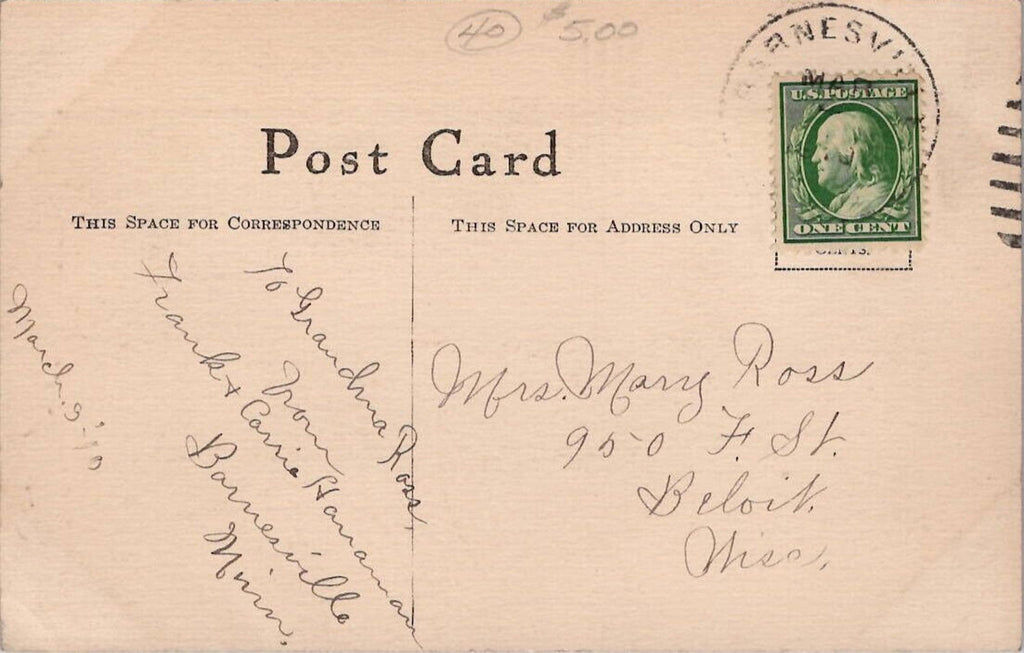 40 $5.00
BARNESVI
MAR
U.S. POSTAGE
ONE CENT
CENTS.
Post Card
THIS SPACE FOR CORRESPONDENCE
THIS SPACE FOR ADDRESS ONLY
March. 9-'10
To Grandma Ross,
from
Frank + Carrie Hanaman
Barnesville
Minn.
Mrs. Mary Ross
950 F. St.
Beloit.
Wisc.